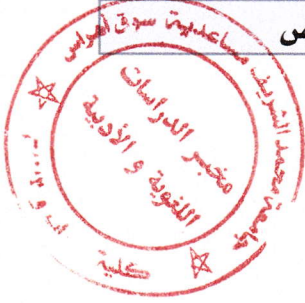 س
جامعة محمد الشريف مساعدية سوق أهراس
مخبر الدراسات
اللغوية و الأدبية
كلية